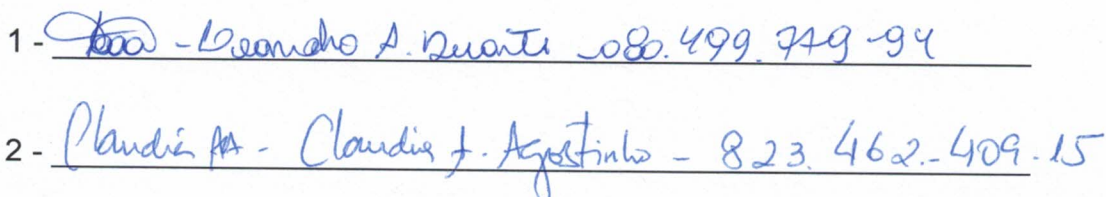 1 - Leandro A. Duarte 080.499.749-94
2 - Claudia AA - Claudia f. Agostinho - 823.462.-409-15